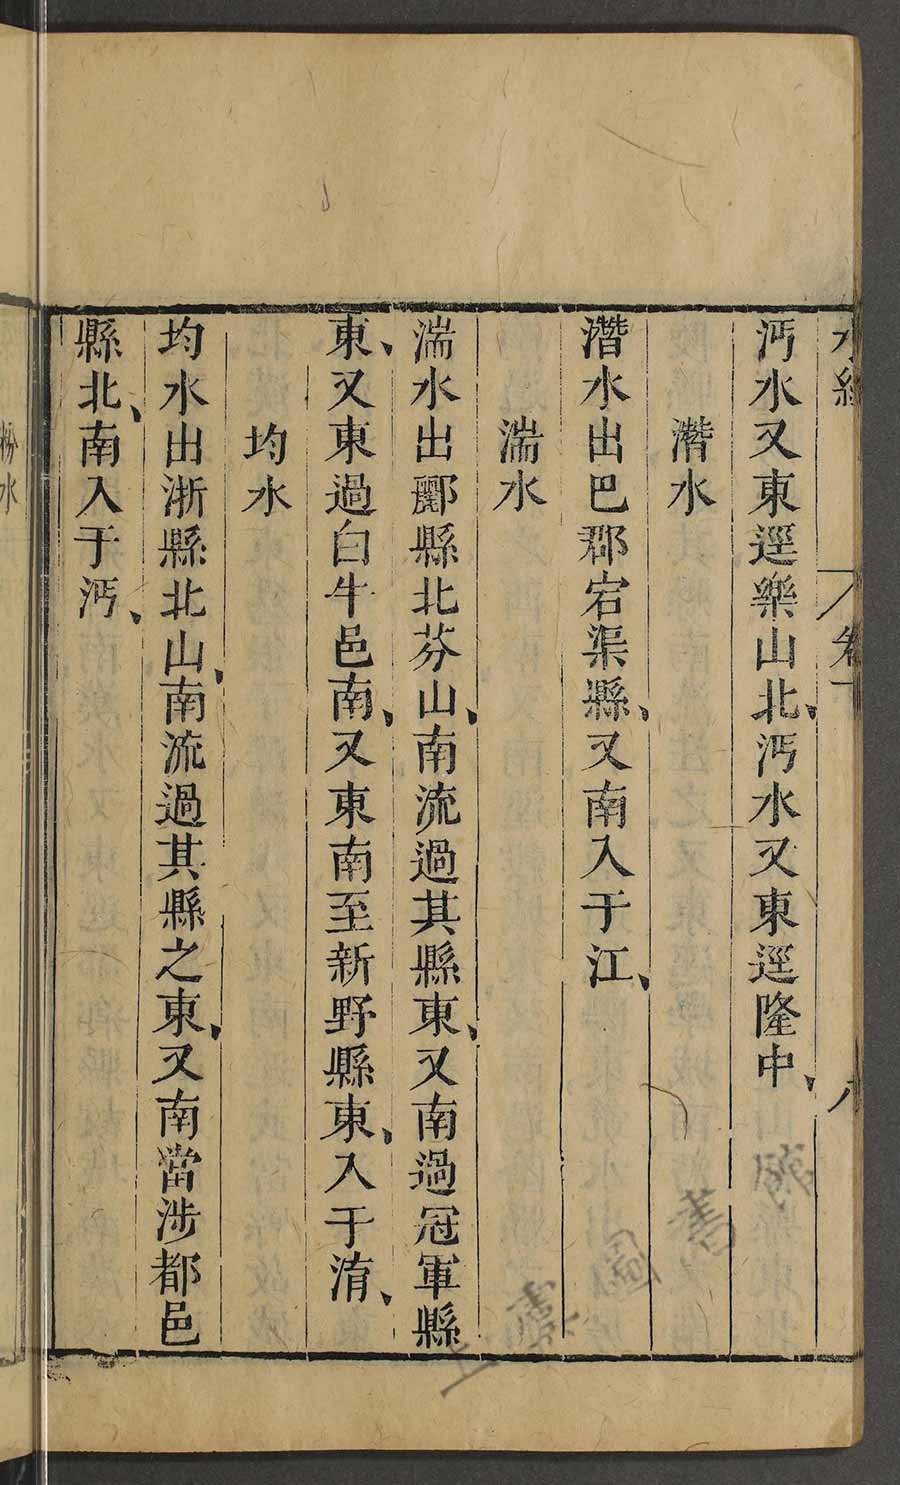 水經
卷下
八
沔水又東逕樂山北、沔水又東逕隆中、
潛水
潛水出巴郡宕渠縣、又南入于江、
湍水
湍水出酈縣北芬山、南流過其縣東、又南過冠軍縣
東、又東過白牛邑南、又東南至新野縣東、入于淯、
均水
均水出淅縣北山、南流過其縣之東、又南當涉都邑
縣北、南入于沔、
粉水